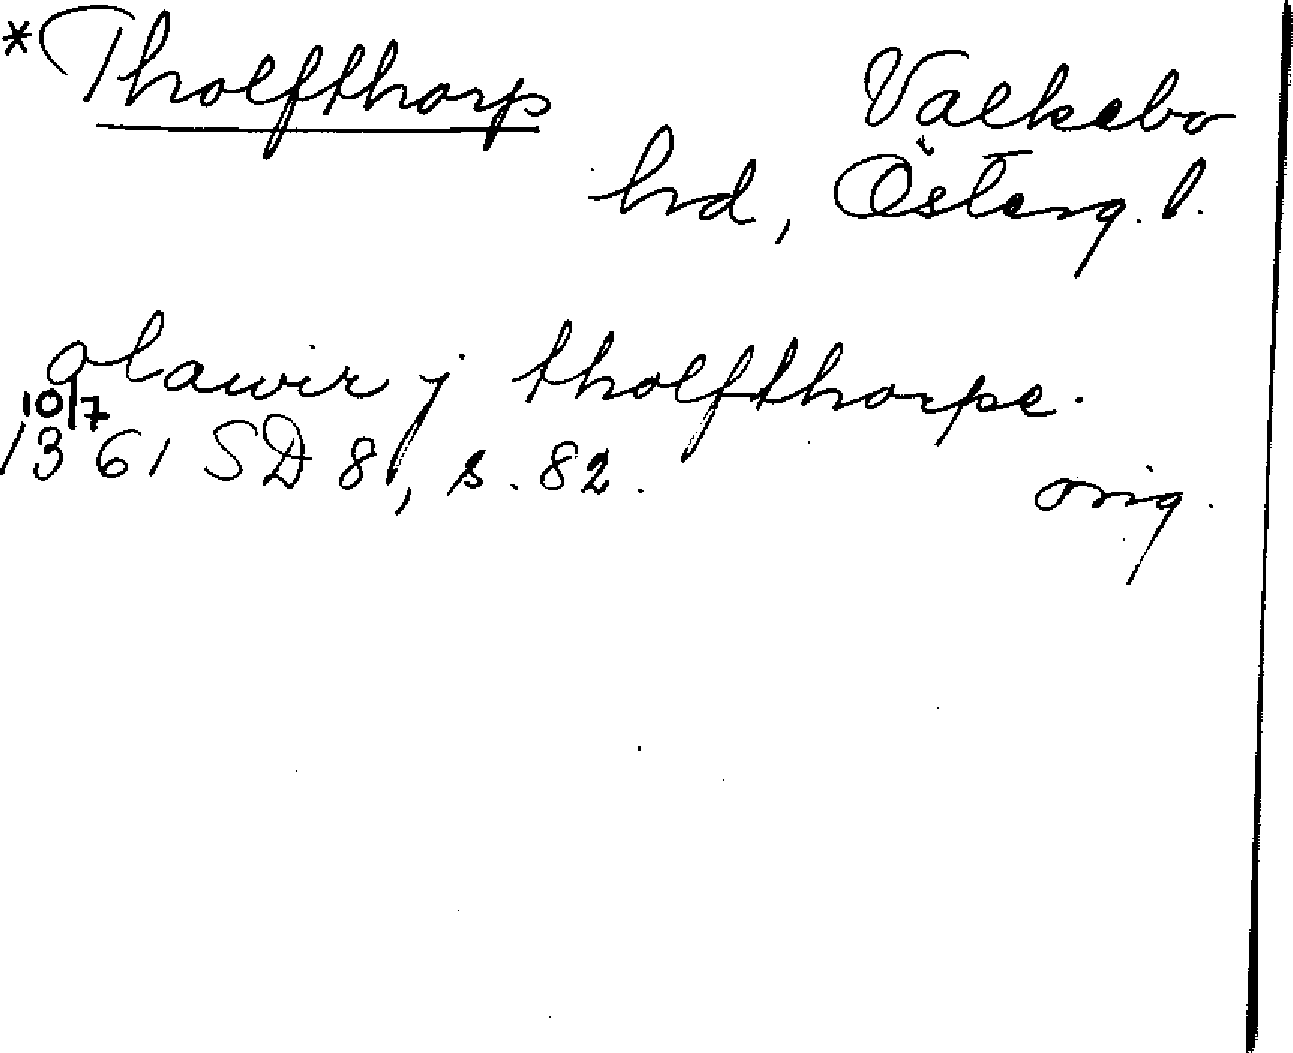 *Tholfthorp Valkebo
hd, Österg. l.
olawir j tholfthorpe.
10/7
1361 SD 8, s. 82. orig.